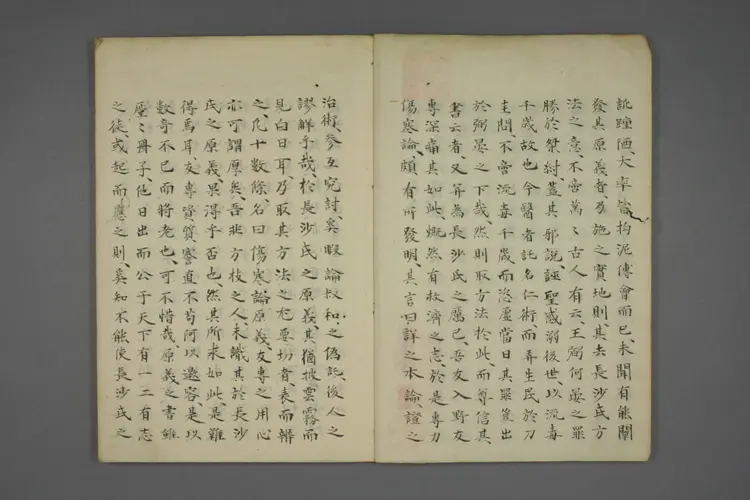 訛踵陋、大率皆拘泥傳會而已、未聞有能闡
發其原義者、乃施之實地、則其去長沙氏方
法之意、不啻萬〻、古人有云、王弼何晏之罪
勝於桀紂、蓋其邪說誣聖惑溺後世、以流毒
千歲故也、今醫者託名仁術、而弄生民於刀
圭間、不啻流毒千歲、而流屢當日、其罪復出
於弼晏之下哉、然則取方法於此、而尊信其
書云者、又算為長沙氏之屬已、吾友入野友
專深痛其如此、慨然有救濟之志、於是專力
傷寒論、頗有所發明、其言曰、詳之本論、證之
治術、參互究討、奚暇論叔和之偽託、後人之
謬解乎哉、於長沙氏之原義、其猶披雲霧而
見白日耳、乃取其方法之尤要切者、表而辨
之、凡十數條、名曰傷寒論原義、友專之用心
亦可謂厚矣、吾非方技之人、未識其於長沙
氏之原義、果得乎否也、然其所求如此、是難
得焉耳、友專資質謇直、不苟阿以邀容、是以
數奇不已而將老也、可不惜哉、原義之書雖
區〻冊子、他日出而公于天下、有一二有志
之徒、或起而應之、則奚知不能使長沙氏之